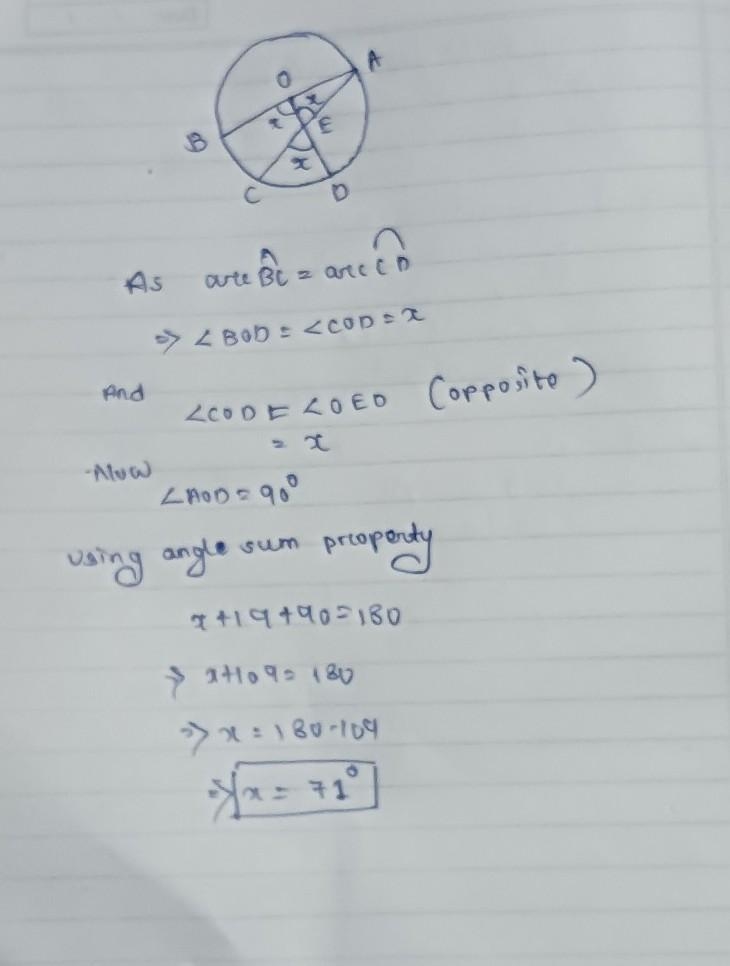 A
O
x
x
E
B
x
C
D
As arc BC = arc CD
⇒ ∠BOD = ∠COD = x
And
∠COD = ∠OED (opposite)
= x
Now
∠AOD = 90°
using angle sum property
x + 19 + 90 = 180
⇒ x + 109 = 180
⇒ x = 180 - 109
⇒ x = 71°